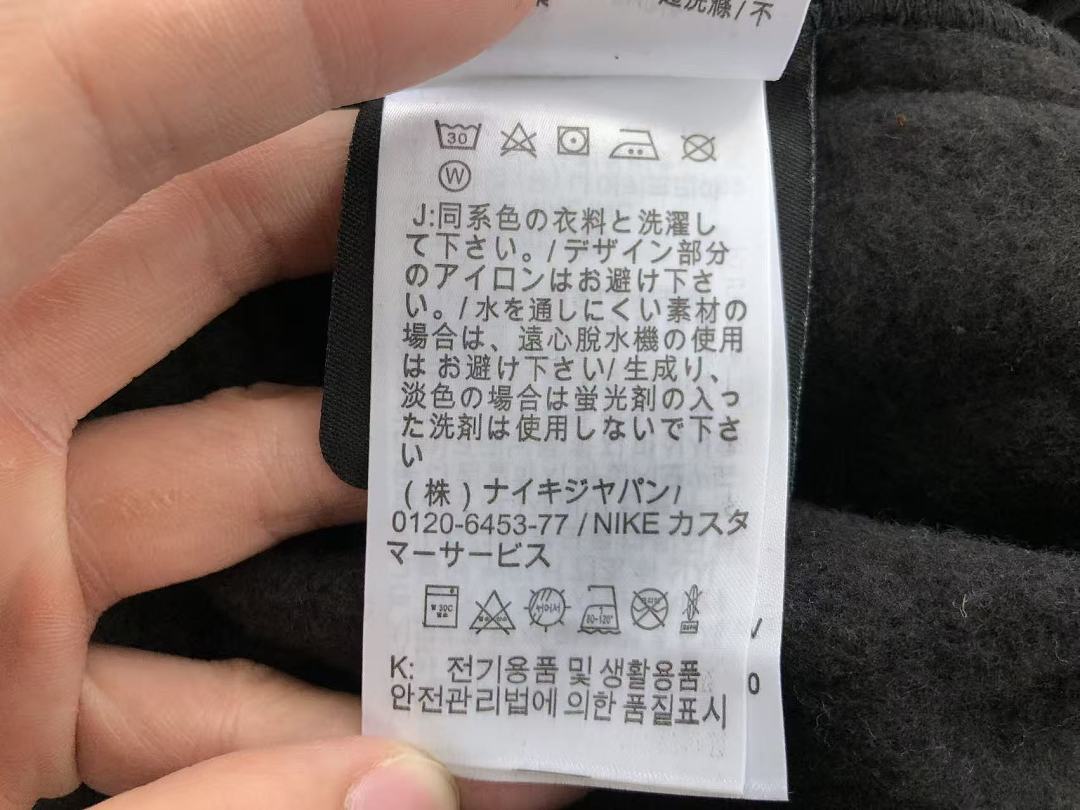 洗滌/不
30
W
J:同系色の衣料と洗濯し
て下さい。/デザイン部分
のアイロンはお避け下さ
い。/水を通しにくい素材の
場合は、遠心脱水機の使用
は お避け下さい/生成り、
淡色の場合は蛍光剤の入っ
た洗剤は使用しないで下さ
い
(株)ナイキジヤパン/
0120-6453-77 / NIKE カスタ
マーサービス
80-120°
K: 전기용품 및 생활용품
안전관리법에 의한 품질표시
0